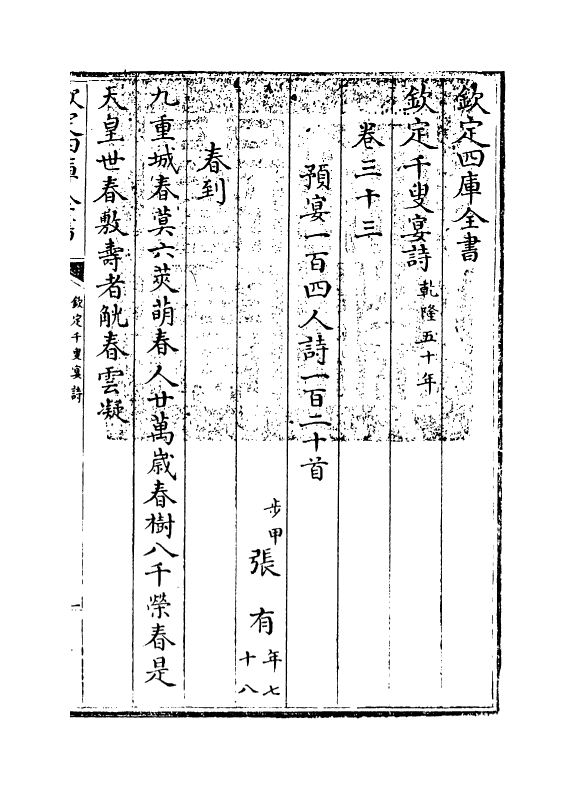 欽定四庫全書
欽定千叟宴詩 乾隆五十年
卷三十三
預宴一百四人詩一百二十首
步甲 張有 年七十八
春到
九重城春蓂六莢萌春人廿萬歲春樹八千榮春是
天皇世春敷壽者觥春雲凝
欽定四庫全書
欽定千叟宴詩
一